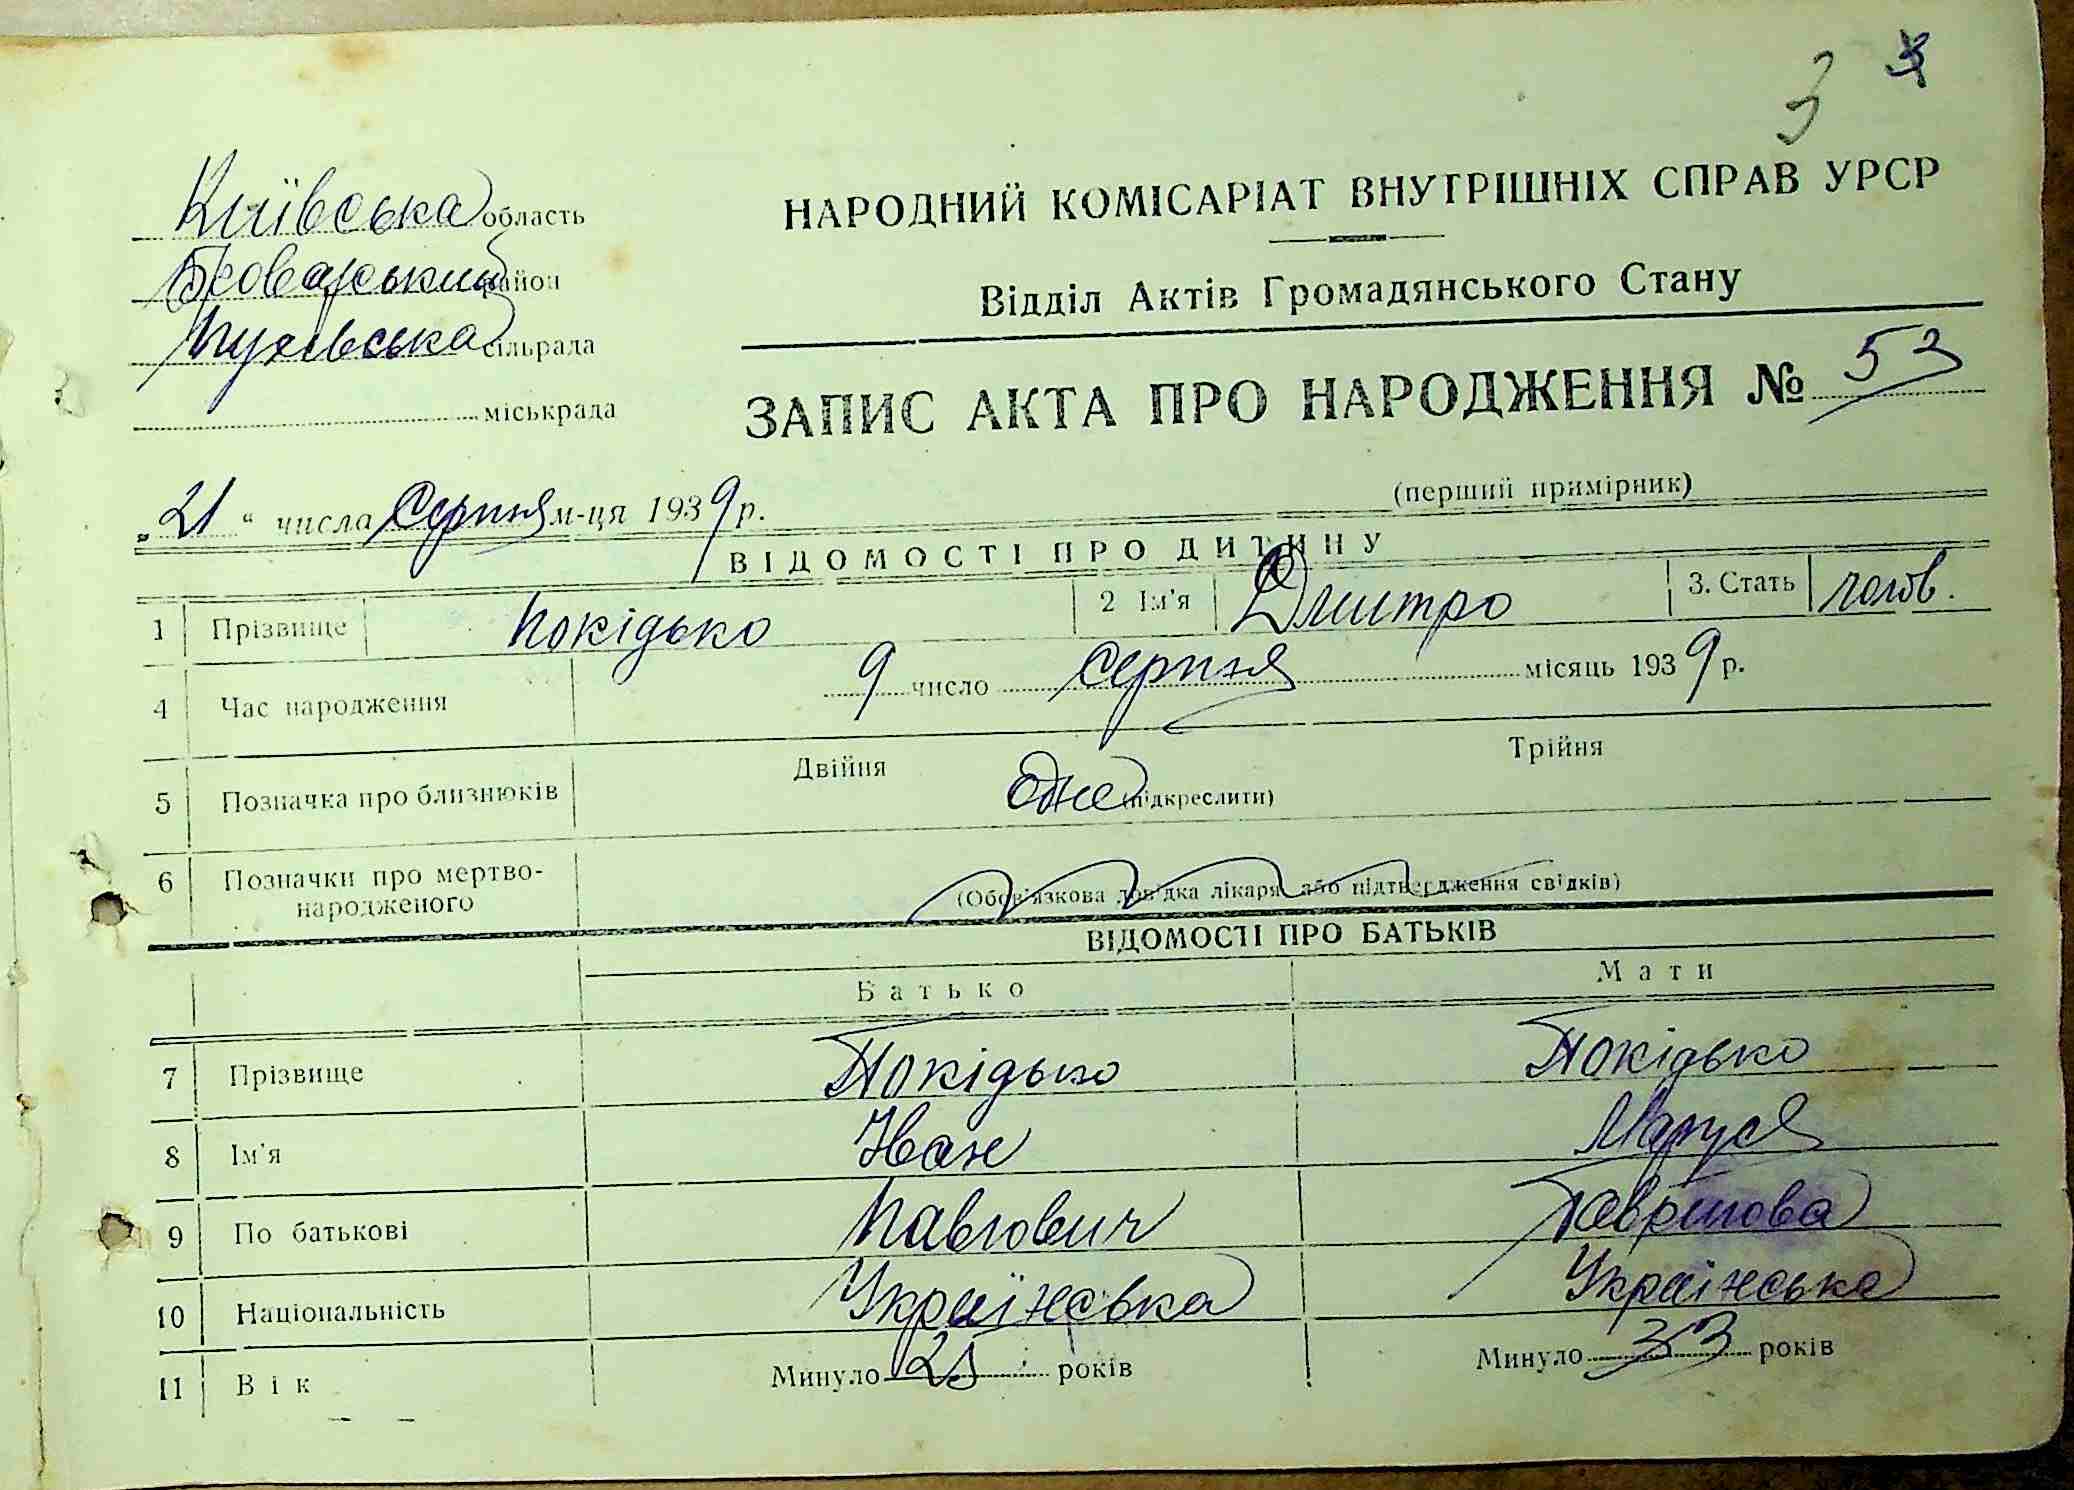 3
Київська область
Броварський район
Пухівська сільрада
міськрада
НАРОДНИЙ КОМІСАРІАТ ВНУТРІШНІХ СПРАВ УРСР
Відділ Актів Громадянського Стану
ЗАПИС АКТА ПРО НАРОДЖЕННЯ № 53
(перший примірник)
„21“ числа Серпня м-ця 1939 р.
ВІДОМОСТІ ПРО ДИТИНУ
1 Прізвище Покідько 2 Ім'я Дмитро 3. Стать чолов.
4 Час народження 9 число серпня місяць 1939 р.
5 Позначка про близнюків Двійня одне (підкреслити) Трійня
6 Позначки про мертво-
народженого (Обов'язкова довідка лікаря або підтвердження свідків)
ВІДОМОСТІ ПРО БАТЬКІВ
Батько Мати
7 Прізвище Покідько Покідько
8 Ім'я Іван Маруся
9 По батькові Павлович Гаврилова
10 Національність Українська Українська
11 Вік Минуло років Минуло 33 років